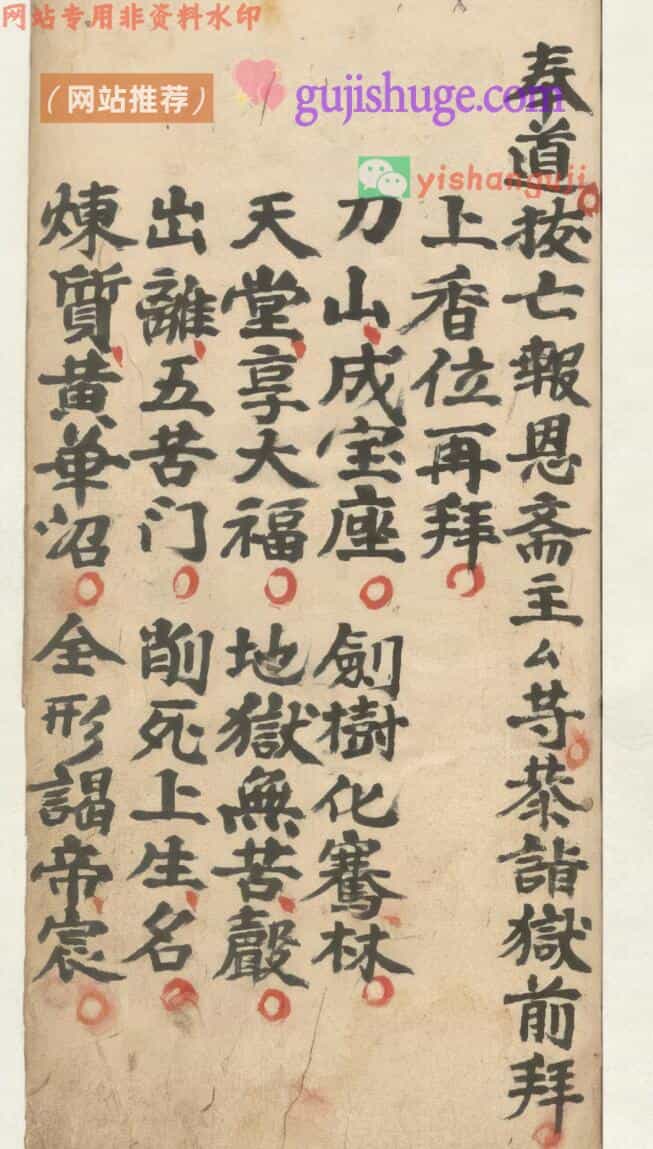 网站专用非资料水印
（网站推荐）
gujishuge.com
yishanguji
奉道拔亡報恩斋主厶䒭恭詣獄前拜
上香位再拜
刀山成宝座 劍樹化騫林
天堂享大福 地獄無苦聲
出離五苦门 削死上生名
煉質黄華沼 全形謁帝宸